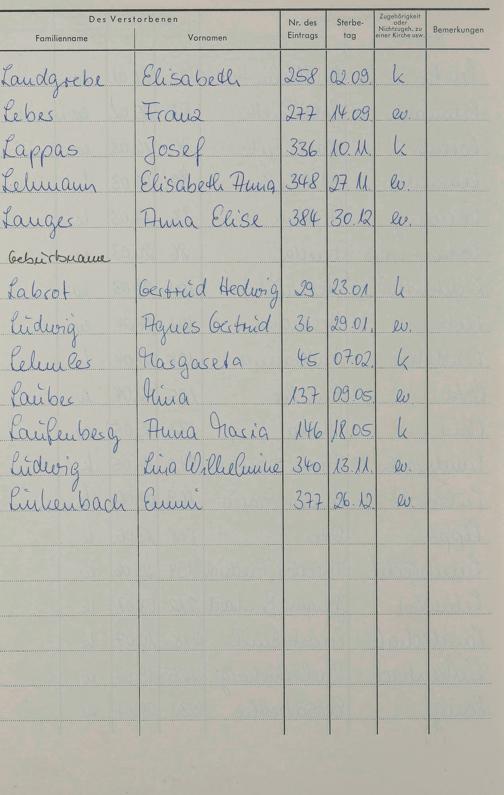 Des Verstorbenen Nr. des Eintrags Sterbe- tag Zugehörigkeit oder Nichtzugeh. zu einer Kirche usw. Bemerkungen
Familienname Vornamen
Landgrebe Elisabeth 258 02.09. k
Leber Franz 277 14.09 ev.
Lappas Josef 336 10.11. k
Lehmann Elisabeth Anna 348 27 11. ev.
Langer Anna Elise 384 30.12 ev.
Geburtsname
Labrot Gertrud Hedwig 29 23.01. k
Ludwig Agnes Gertrud 36 29.01. ev.
Lehmler Margareta 45 07.02. k
Lauber Mina 137 09.05. ev
Laufenberg Anna Maria 146 18.05. k
Ludwig Lina Wilhelmine 340 13.11. ev.
Linkenbach Emmi 377 26.12. ev.